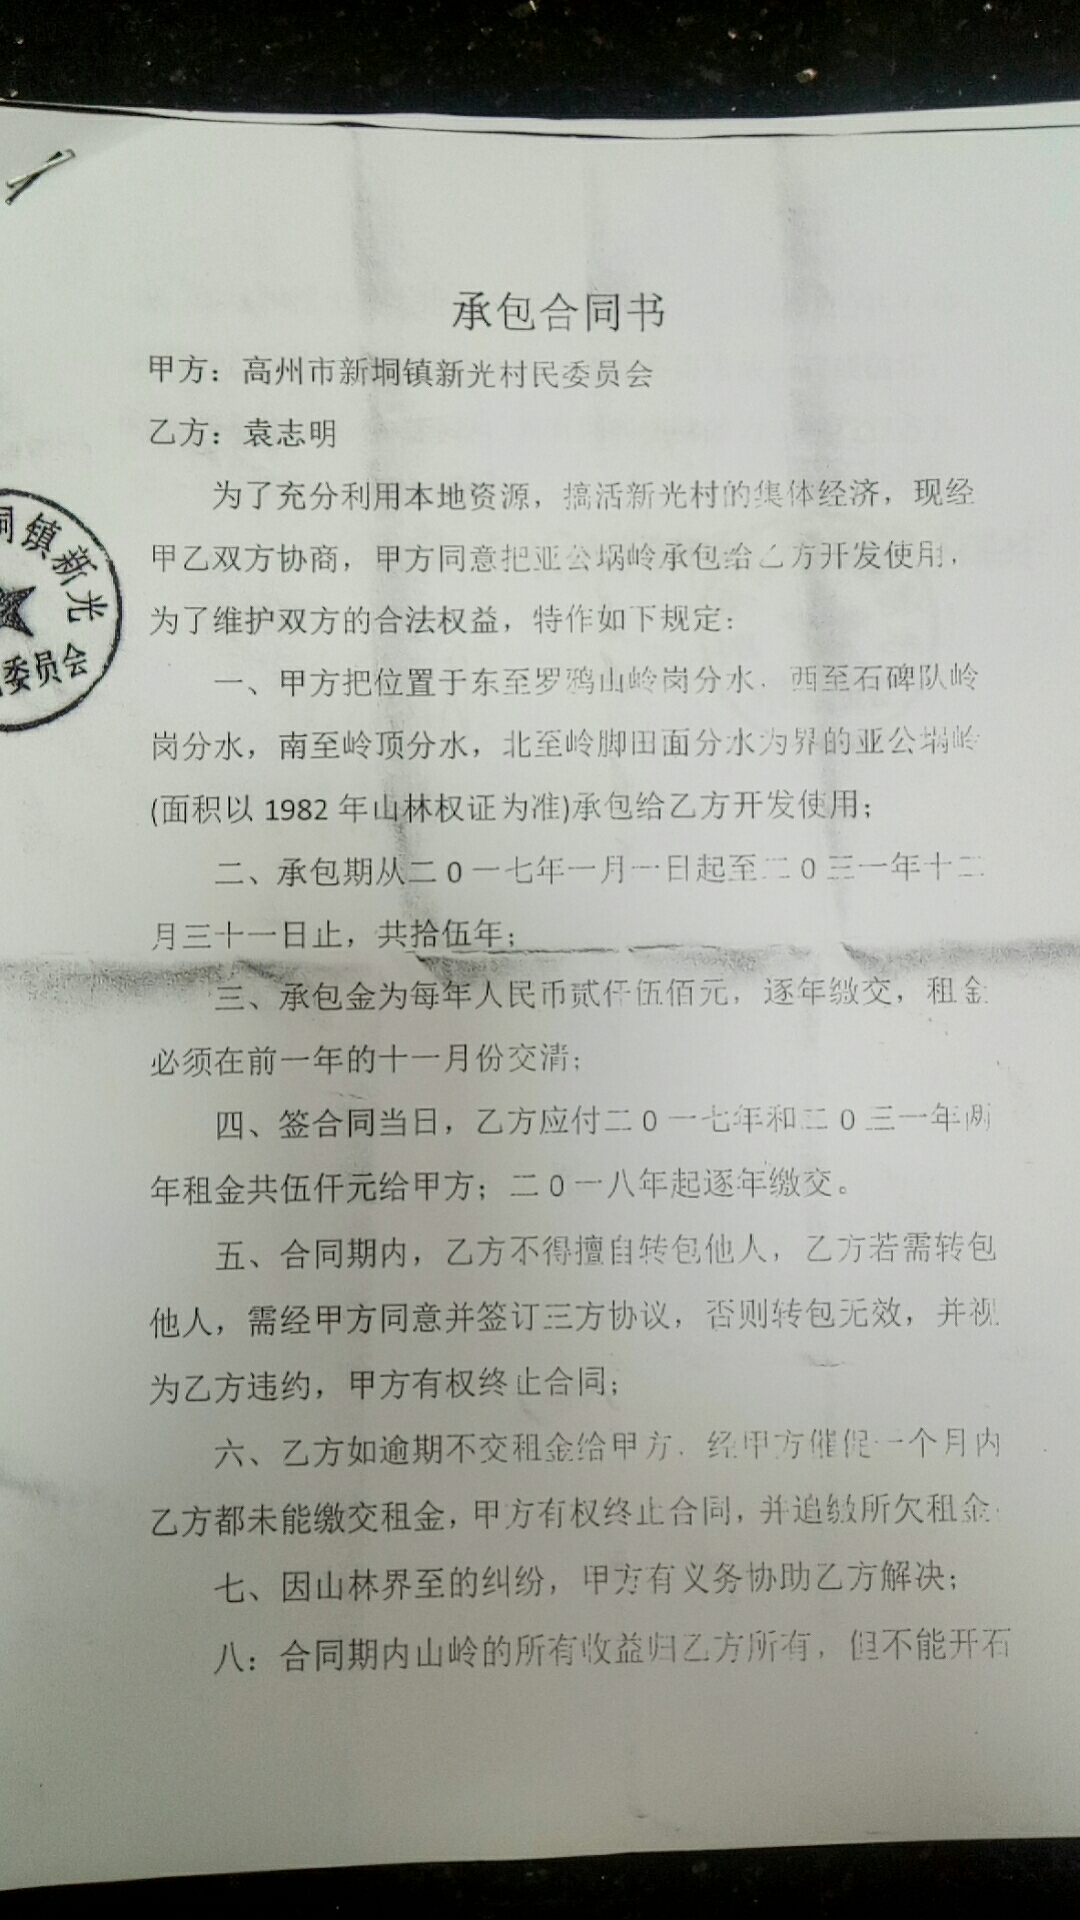 承包合同书
甲方：高州市新垌镇新光村民委员会
乙方：袁志明
为了充分利用本地资源，搞活新光村的集体经济，现经
甲乙双方协商，甲方同意把亚公埚岭承包给乙方开发使用，
为了维护双方的合法权益，特作如下规定：
一、甲方把位置于东至罗鸦山岭岗分水．西至石碑队岭
岗分水，南至岭顶分水，北至岭脚田面分水为界的亚公埚岭
(面积以 1982 年山林权证为准)承包给乙方开发使用；
二、承包期从二0一七年一月一日起至二0三一年十二
月三十一日止，共拾伍年；
三、承包金为每年人民币贰仟伍佰元，逐年缴交，租金
必须在前一年的十一月份交清；
四、签合同当日，乙方应付二0一七年和二0三一年两
年租金共伍仟元给甲方；二0一八年起逐年缴交。
五、合同期内，乙方不得擅自转包他人，乙方若需转包
他人，需经甲方同意并签订三方协议，否则转包无效，并视
为乙方违约，甲方有权终止合同；
六、乙方如逾期不交租金给甲方．经甲方催促一个月内
乙方都未能缴交租金，甲方有权终止合同，并追缴所欠租金
七、因山林界至的纠纷，甲方有义务协助乙方解决；
八：合同期内山岭的所有收益归乙方所有，但不能开石
垌镇新光
委员会